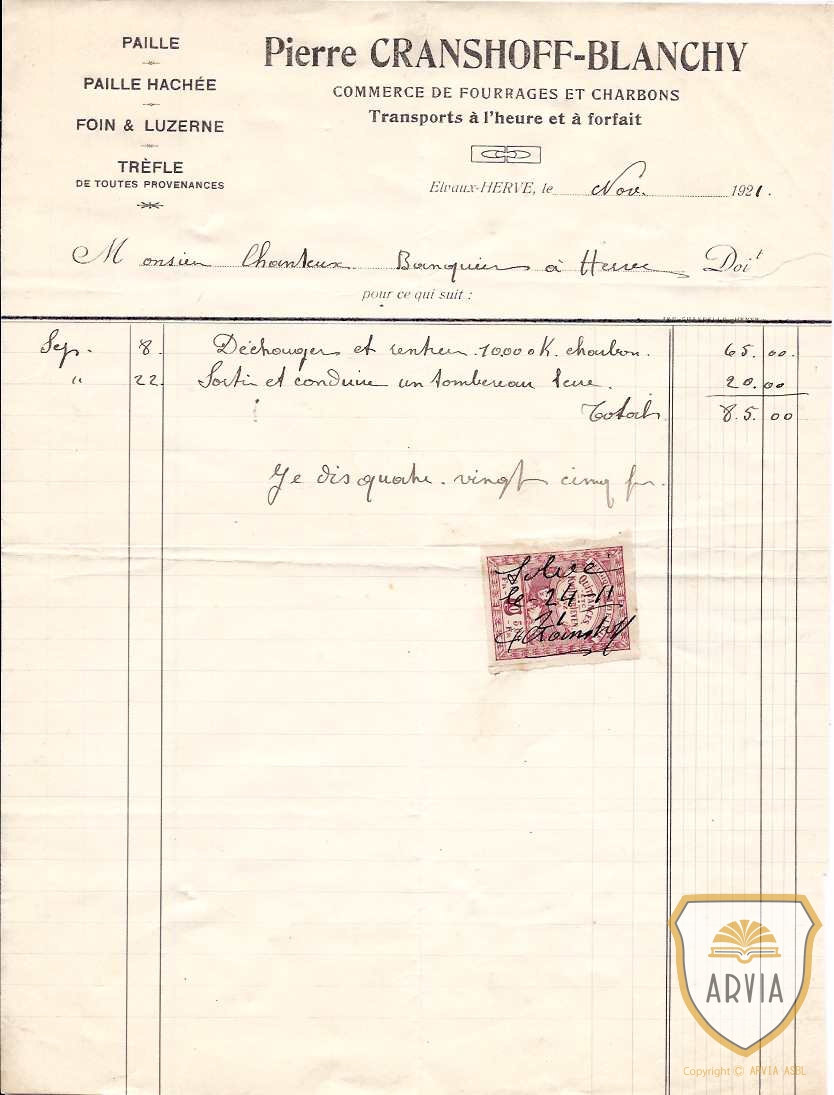 PAILLE
PAILLE HACHÉE
FOIN & LUZERNE
TRÈFLE
DE TOUTES PROVENANCES
Pierre CRANSHOFF-BLANCHY
COMMERCE DE FOURRAGES ET CHARBONS
Transports à l'heure et à forfait
Elvaux-HERVE, le Nov. 1921.
Monsieur Chanteux Banquier à Herve Doit
pour ce qui suit :
Sep. 8. Déchouger et rentrer 10.000 K. charbon. 65.00.
" 22. Sortir et conduire un tombereau terre. 20.00
Total 85.00
Je dis quatre-vingt cinq fr.
le 24-11
21
ARVIA
Copyright © ARVIA ASBL